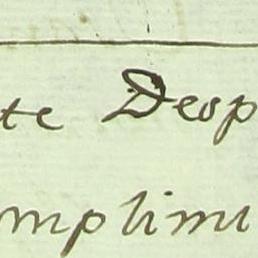 te Desp
mplimi